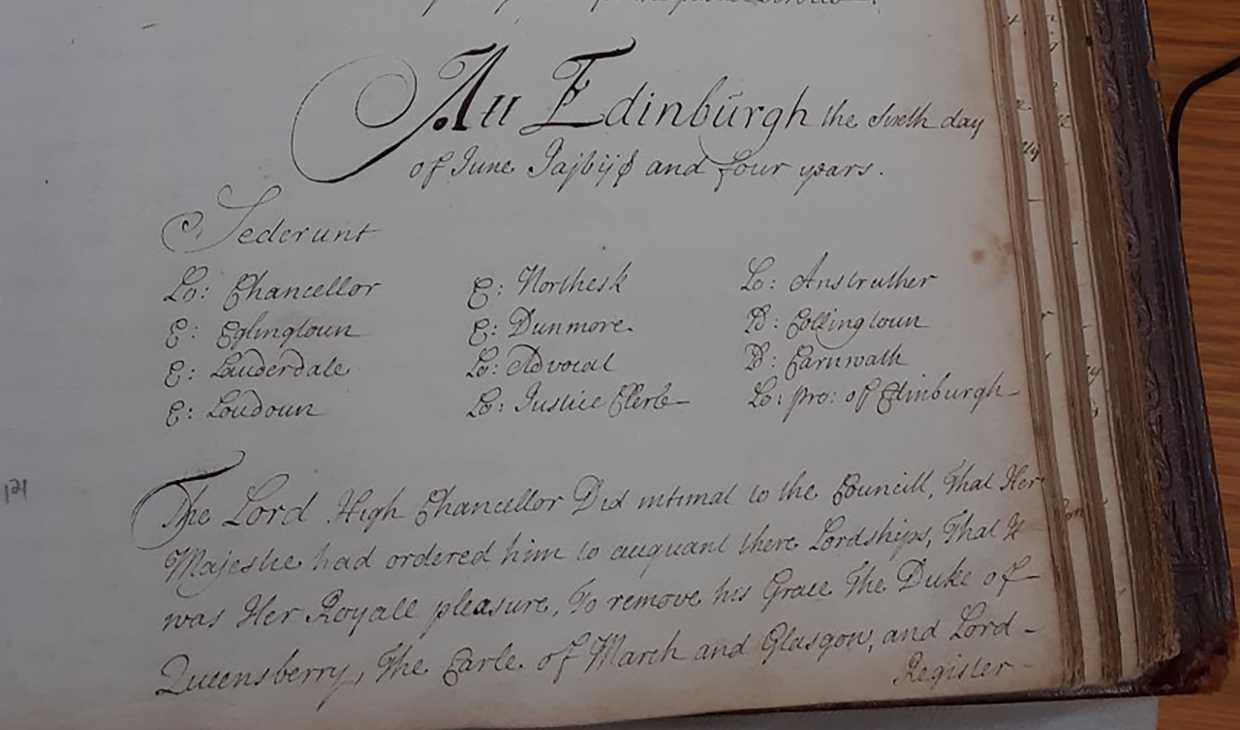 Att Edinburgh the sixth day
of June Jajvijc and four years.
Sederunt
Lo: Chancellor E: Northesk Lo: Anstruther
E: Eglingtoun E: Dunmore B: Collingtoun
E: Lauderdale Lo: Advocat B: Carnwath
E: Loudoun Lo: Justice Clerk Lo: pro: of Edinburgh
121
The Lord High Chancellor Did intimat to the Councill, That Her
Majestie had ordered him to acquant there Lordships, That it
was Her Royall pleasure, To remove his Grace The Duke of
Queensberry, The Earle of March and Glasgow, and Lord
Register